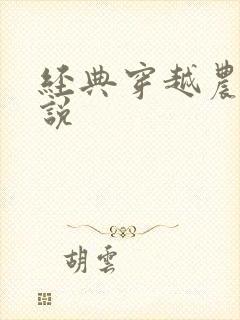 經典穿越農
說
胡雲